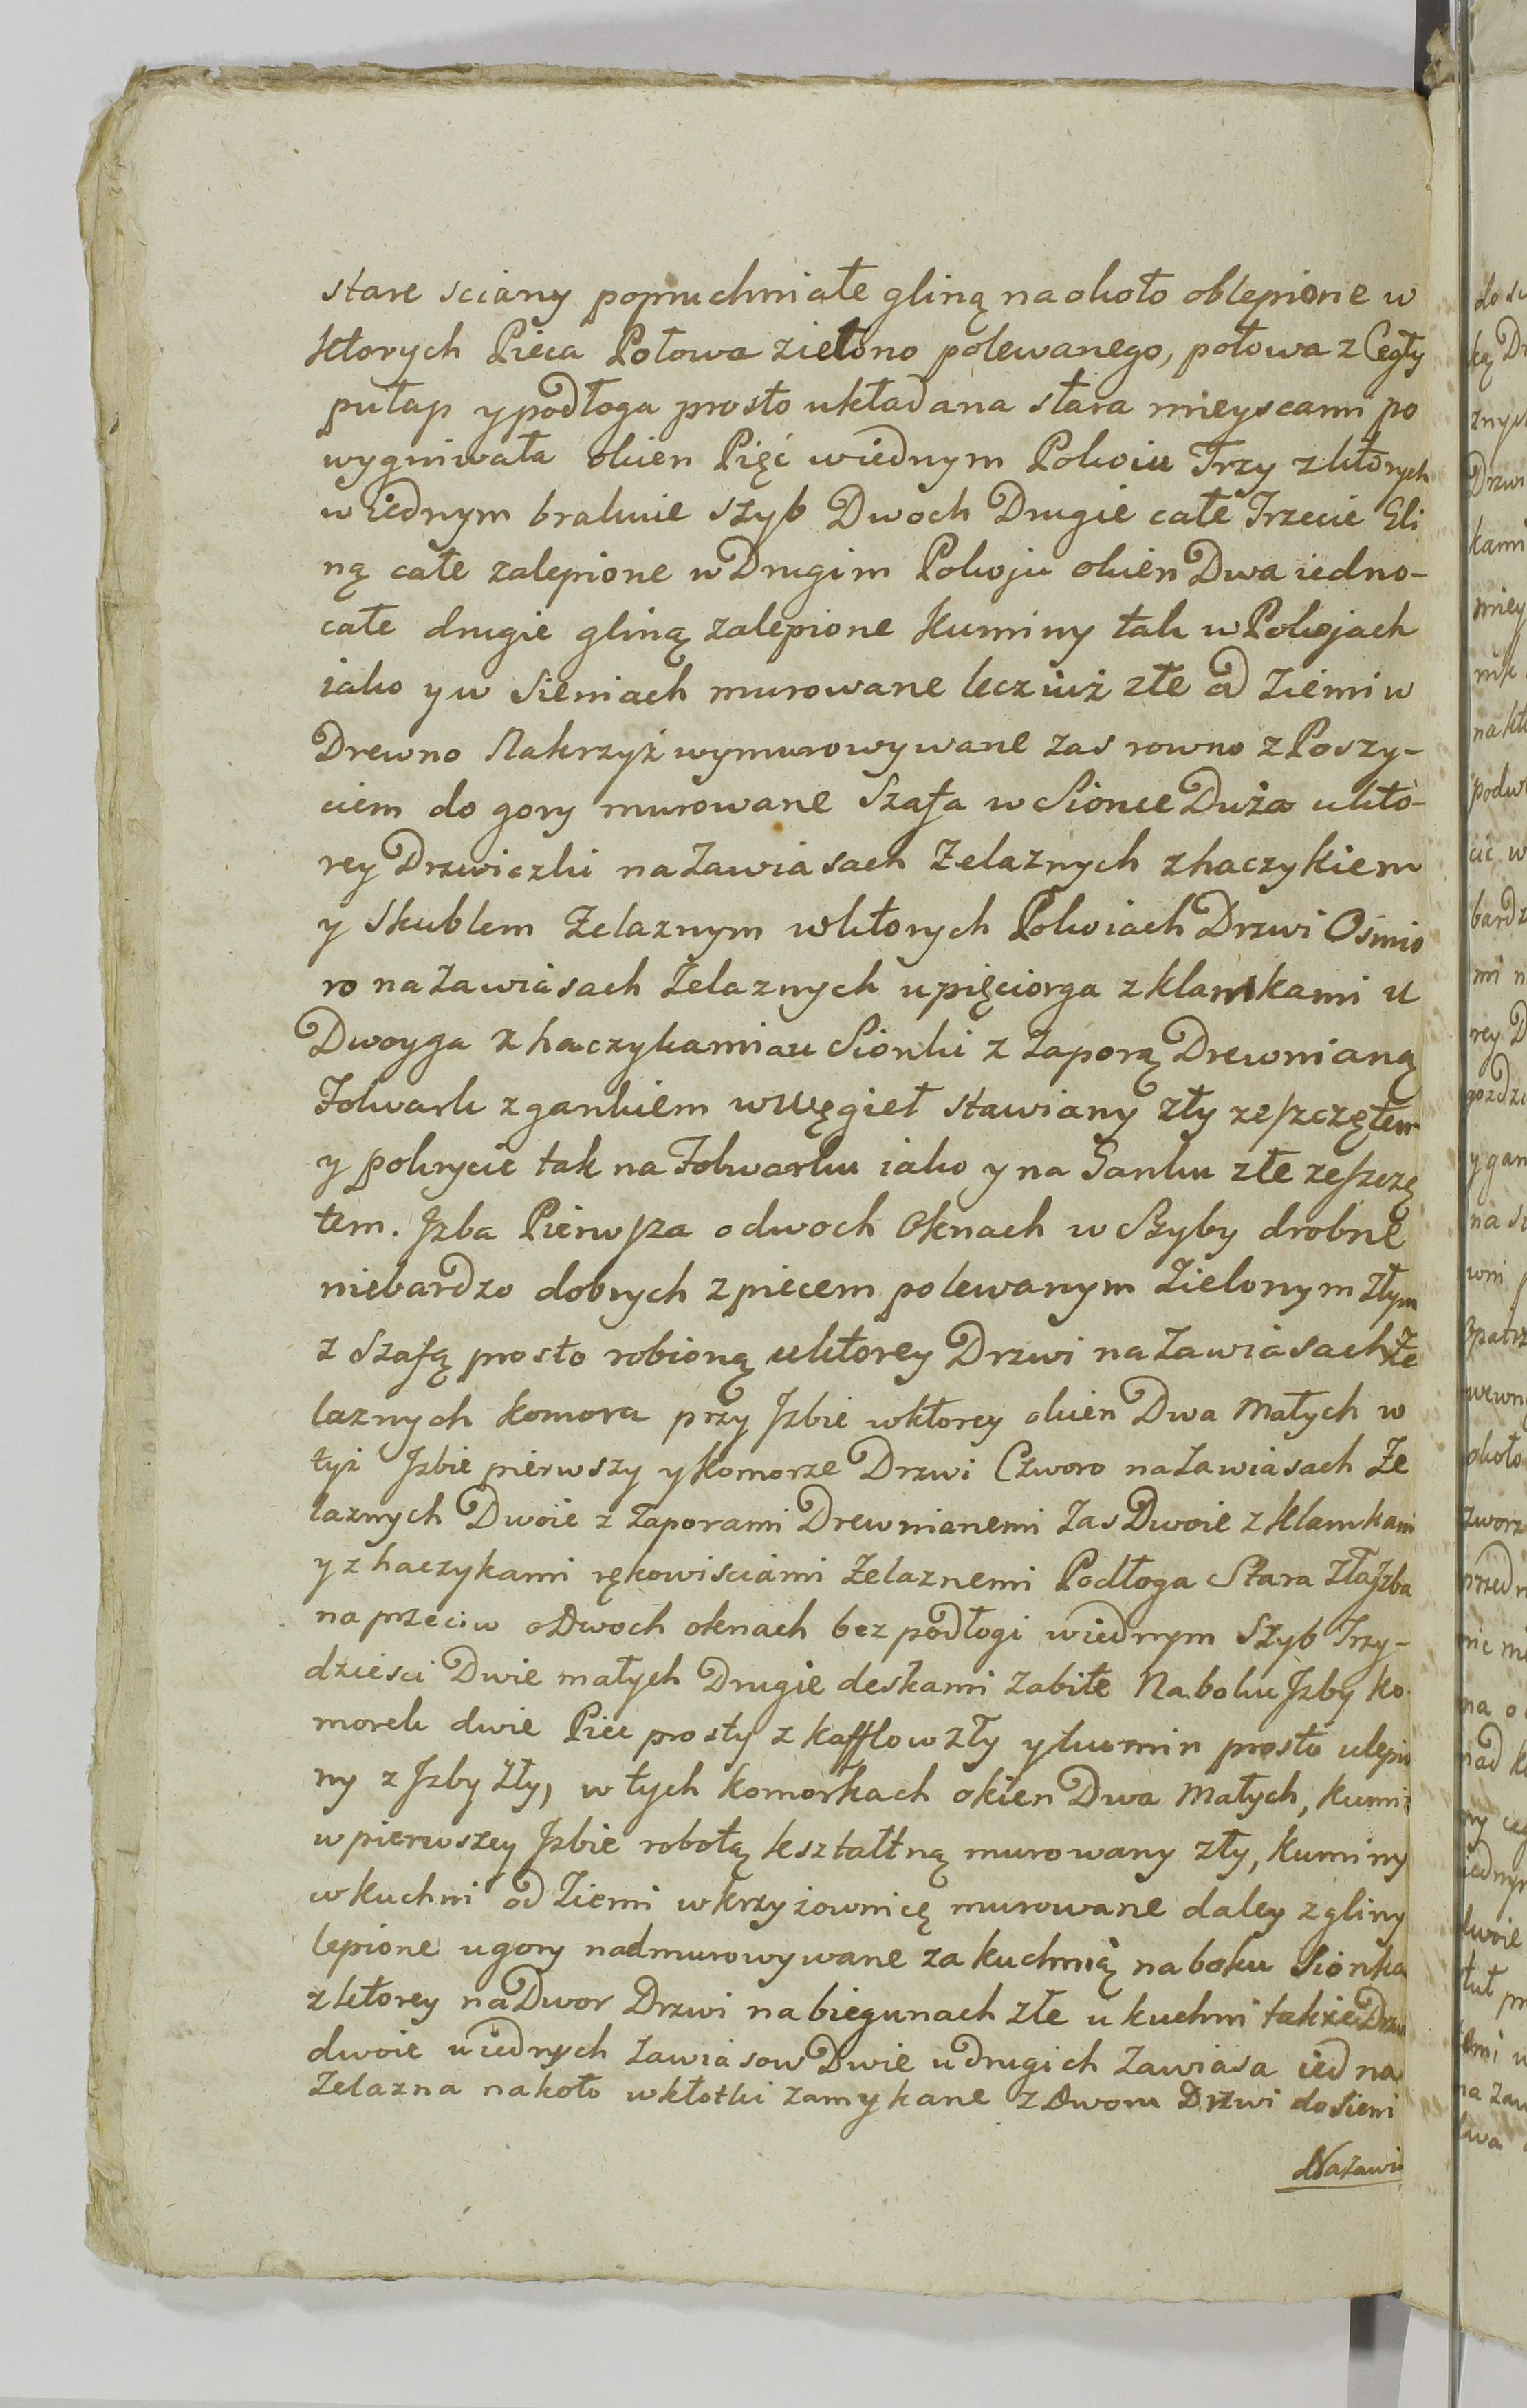 stare sciany popruchniałe gliną naokoło oblepione w
ktorych Pieca Połowa zielono polewanego, połowa z Cegły
pułap y podłoga prosto układana stara mieyscami po
wygniwała okien Pięć w iednym Pokoiu Trzy z ktorych
w iednym brakuie szyb Dwoch Drugie całe Trzecie Gli
ną całe zalepione w Drugim Pokoju okien Dwa iedno-
całe drugie gliną zalepione Kuminy tak w Pokojach
iako y w Sieniach murowane lecz iuż złe od Ziemi w
Drewno Nakrzyż wymurowywane zas rowno z Poszy-
ciem do gory murowane Szafa w Sionce Duża u kto-
rey Drzwiczki na Zawiasach Żelaznych z haczykiem
y Skublem Żelaznym w ktorych Pokoiach Drzwi Ośmio
ro na Zawiasach Żelaznych u pięciorga z klamkami u
Dwoyga z haczykami a u Sionki z Zaporą Drewnianą
Folwark z gankiem w Węgieł stawiany zły ze szczętem
y pokrycie tak na Folwarku iako y na Ganku złe ze szczę
tem. Jzba Pierwsza o dwoch Oknach w Szyby drobne
niebardzo dobrych z piecem polewanym Zielonym złym
z Szafą prosto robioną u ktorey Drzwi na Zawiasach Że
laznych komora przy Jzbie w ktorey okien Dwa Małych w
tyż Jzbie pierwszy y komorze Drzwi Czworo na Zawiasach Że
laznych Dwoie z Zaporami Drewnianemi Zas Dwoie z klamkami
y z haczykami rękowisciami Żelaznemi Podłoga Stara Zła Jzba
na przeciw o Dwoch oknach bez podłogi w iednym Szyb Trzy-
dziesci Dwie małych Drugie deskami Zabite Na boku Jzby ko-
morek dwie Piec prosty z kafflow zły y kumin prosto ulepio
ny z Jzby Zły, w tych komorkach okien Dwa Małych, kumin
w pierwszey Jzbie robotą kształtną murowany zły, kuminy
w kuchni od Ziemi w krzyżownicę murowane daley z gliny
lepione u gory nadmurowywane za kuchnią na boku Sionka
z ktorey na Dwor Drzwi na biegunach złe u kuchni także Drzwi
dwoie u iednych Zawiasow Dwie u drugich Zawiasa iedna
Żelazna nakoło w kłotki zamykane z Dworu Drzwi do Sieni
Na Zawia